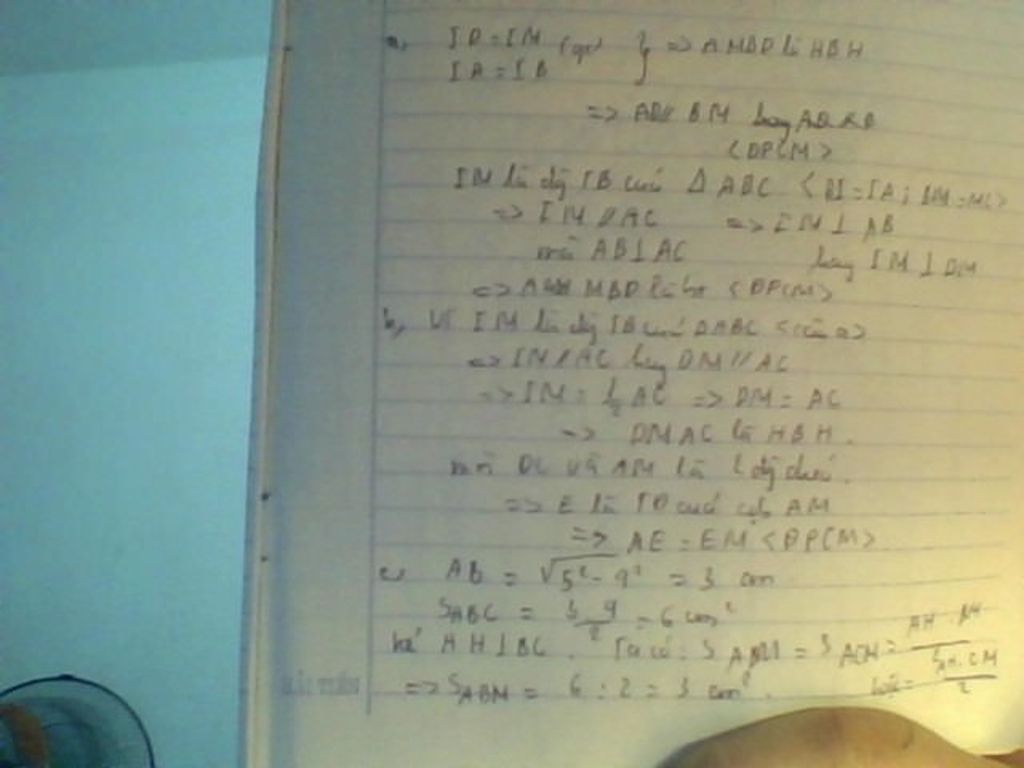 a, ID = IM (gt) } => AMBD là HBH
IA = IB
=> AD // BM hay AD //
<ĐPCM>
IM là đg TB của Δ ABC < BI = IA ; BM = MC >
=> IM // AC => IM ⊥ AB
mà AB ⊥ AC hay IM ⊥ DM
=> MBD là <ĐPCM>
b, Vì IM là đg TB của ΔABC < câu a >
=> IM // AC hay DM // AC
=> IM = 1/2 AC => DM = AC
=> DMAC là HBH.
mà DC và AM là 2 đg chéo.
=> E là TĐ của AM
=> AE = EM <ĐPCM>
c, AB = √5² - 4² = 3 cm
SABC = 3.4/2 = 6 cm²
kẻ AH ⊥ BC. Ta có: SABM = SACM =
=> SABM = 6 : 2 = 3 cm². AH.CM/2